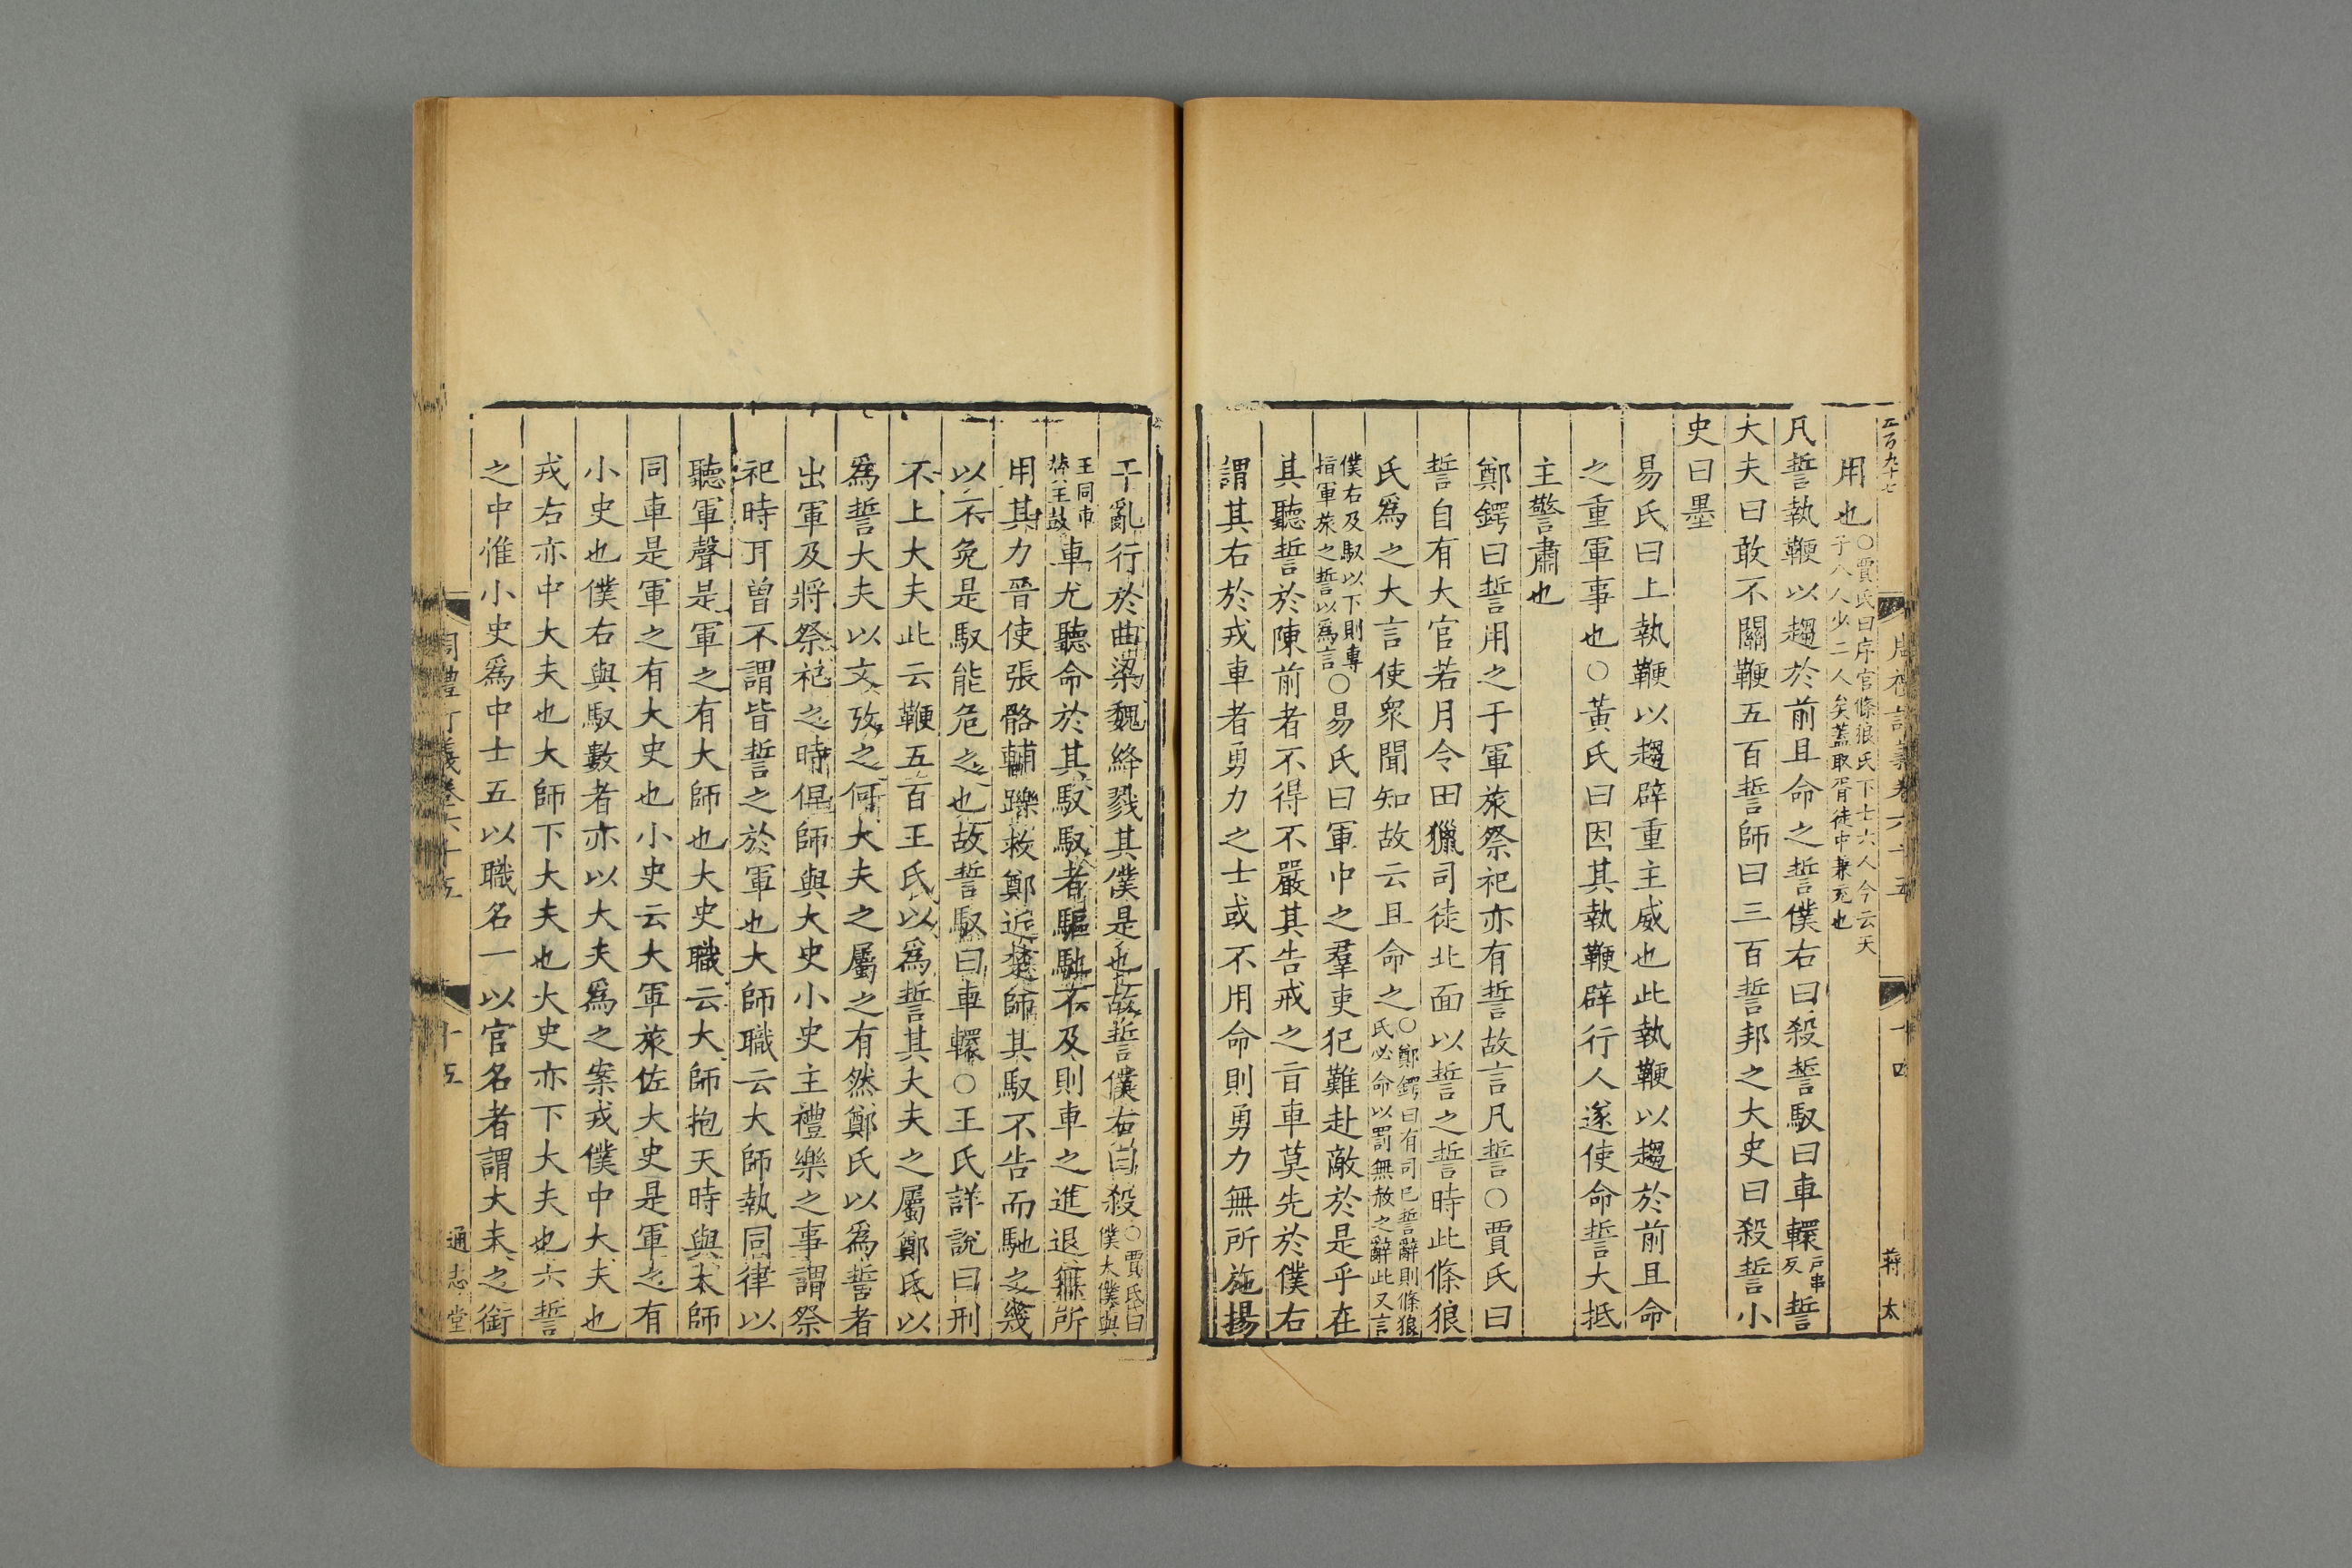 五百九十七 周禮訂義卷六十五 十四 蔣太
用也○賈氏曰序官條狼氏下士六人今云天子八人少二人矣蓋取胥徒中兼充也
凡誓執鞭以趨於前且命之誓僕右曰殺誓馭曰車轘戶串反誓
大夫曰敢不關鞭五百誓師曰三百誓邦之大史曰殺誓小
史曰墨
易氏曰上執鞭以趨辟重主威也此執鞭以趨於前且命
之重軍事也○黃氏曰因其執鞭辟行人遂使命誓大抵
主警肅也
鄭鍔曰誓用之于軍旅祭祀亦有誓故言凡誓○賈氏曰
誓自有大官若月令田獵司徒北面以誓之誓時此條狼
氏爲之大言使衆聞知故云且命之○鄭鍔曰有司已誓辭則條狼氏必命以罰無赦之辭此又言
僕右及馭以下則專指軍旅之誓以爲言○易氏曰軍中之羣吏犯難赴敵於是乎在
其聽誓於陳前者不得不嚴其告戒之言車莫先於僕右
謂其右於戎車者勇力之士或不用命則勇力無所施揚
干亂行於曲梁魏絳戮其僕是也故誓僕右曰殺○賈氏曰僕大僕與
王同車故車尤聽命於其馭馭者驅馳不及則車之進退無所
用其力晉使張骼輔躒救鄭近楚師其馭不告而馳之幾
以不免是馭能危之也故誓馭曰車轘○王氏詳說曰刑
不上大夫此云鞭五百王氏以爲誓其大夫之屬鄭氏以
爲誓大夫以文攷之何大夫之屬之有然鄭氏以爲誓者
出軍及將祭祀之時但師與大史小史主禮樂之事謂祭
祀時耳曾不謂皆誓之於軍也大師職云大師執同律以
聽軍聲是軍之有大師也大史職云大師抱天時與太師
同車是軍之有大史也小史云大軍旅佐大史是軍之有
小史也僕右與馭數者亦以大夫爲之案戎僕中大夫也
戎右亦中大夫也大師下大夫也大史亦下大夫也六誓
之中惟小史爲中士五以職名一以官名者謂大夫之銜
周禮訂義卷六十五 十五 通志堂